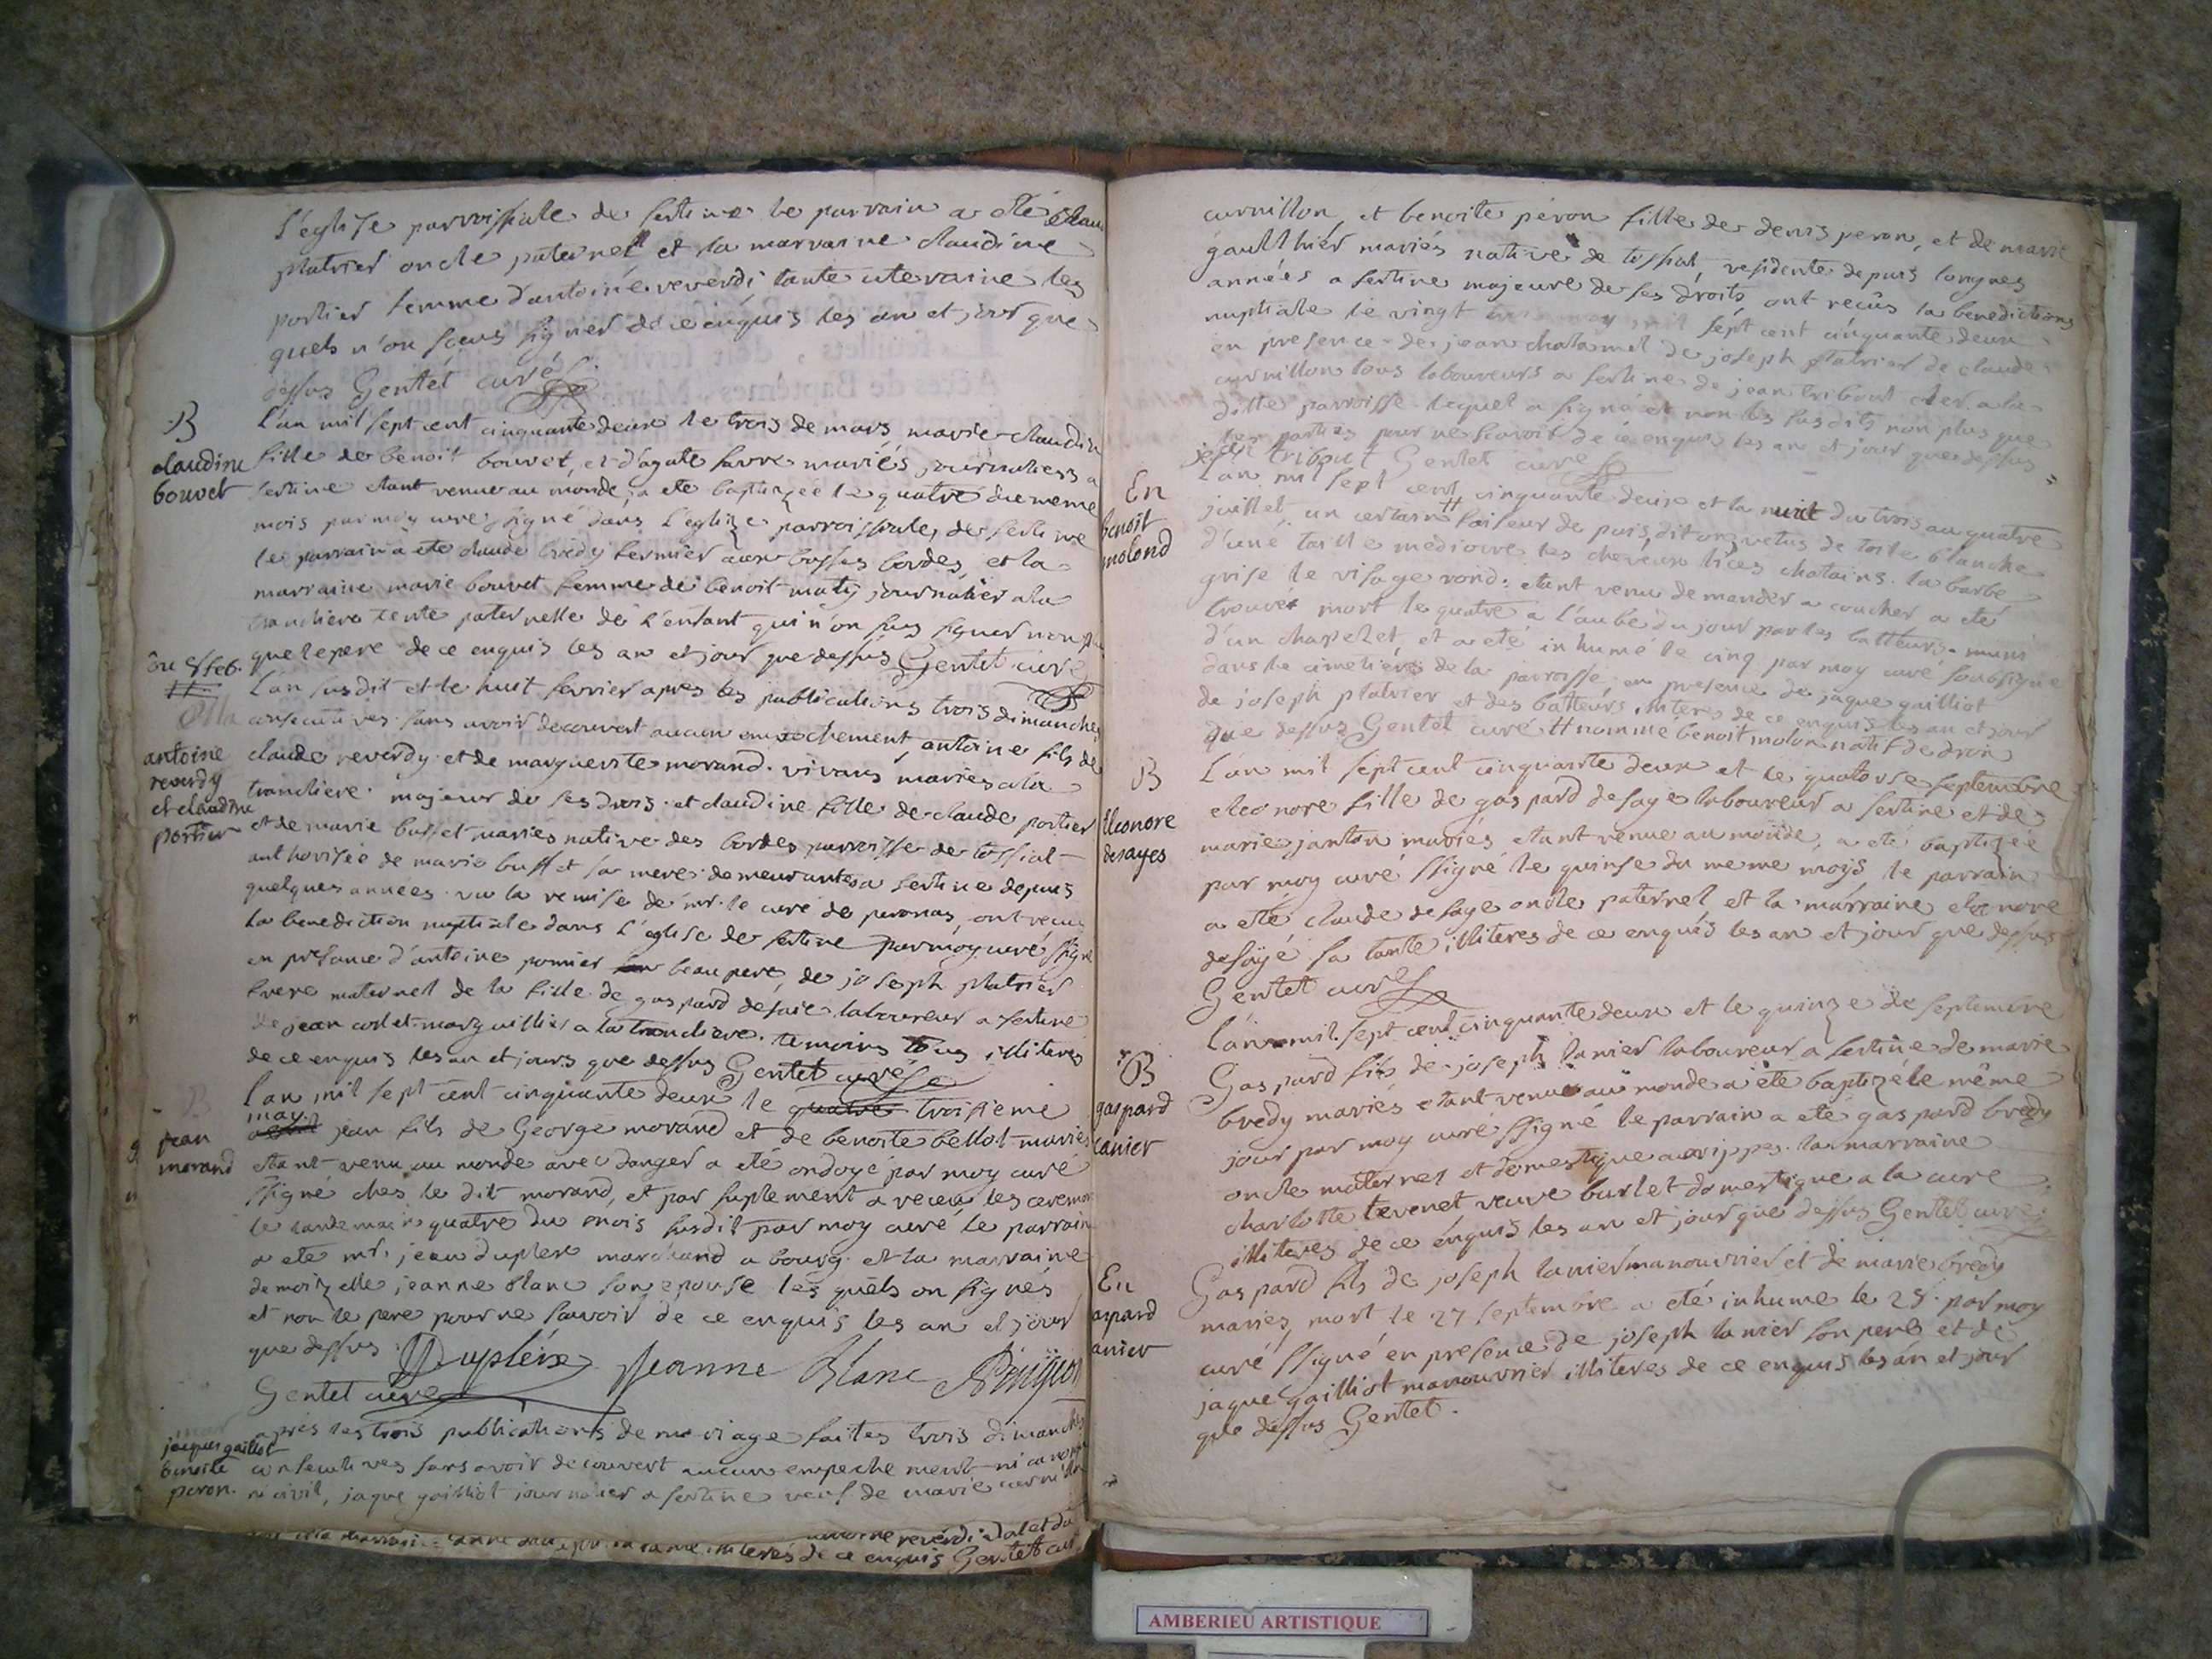 L'eglise parroissiale de sertine le parrain a été Clau
platrier oncle paternel et la marraine claudine
portier femme d'antoine reverdi tante uteraine les
quels n'on sceus signer de ce enquis les an et jour que
dessus Gentet curé
B
claudine
bouvet
L'an mil sept cent cinquante deux le trois de mars marie claudin
fille de benoit bouvet, et d'agate favre mariés journaliers a
sertine etant venue au monde, a ete baptizee le quatre du meme
mois par moy curé ssigné dans l'eglize parroissiale de sertine
le parrain a ete claude bredy fermier aux basses bordes, et la
marraine marie bouvet femme de benoit maty journalier a la
tranchiere tente paternelle de l'enfant qui n'on sus signer non plu
que le pere de ce enquis les an et jour que dessus Gentet curé
8 feb.
antoine
reverdy
et claudine
portier
L'an susdit et le huit fevrier apres les publications trois dimanches
consecutives sans avoir decouvert aucun empechement antoine fils de
claude reverdy et de marguerite morand vivans mariés a la
tranchiere majeur de ses drois et claudine fille de claude portier
et de marie buffet mariés native des bordes parroisse de tossiat
authorisée de marie buffet sa mere demeurante a sertine depuis
quelques années vu la remise de mr. le curé de peronas, ont recu
la benediction nuptiale dans l'eglise de sertine par moy curé ssigné
en presance d'antoine pomier beau pere, de joseph platrier
frere maternel de la fille de gaspard desaie laboureur a sertine
de jean corlet marguillier a la tranchiere temoins tous illiteres
de ce enquis les an et jours que dessus Gentet curé
B
jean
morand
L'an mil sept cent cinquante deux le quatre troisieme
may
jean fils de George morand et de benoite bellot mariés
etant venu au monde avec danger a eté ondoyé par moy curé
ssigné ches le dit morand, et par suplement a receu les ceremon
le landemain quatre du mois susdit par moy curé le parrain
a ete mr. jean duplex marchand a bourg et la marraine
demoizelle jeanne blanc son epouse les quels on signés
et non le pere pour ne savoir de ce enquis les an et jour
que dessus
Dupleix Jeanne Blanc
Gentet curé
jaques gaillot
benoite
peron.
après les trois publications de mariage faites trois dimanches
consecutives sans avoir decouvert aucun empechement ni cano
ni civil, jaque gailliot journalier a sertine veuf de marie curnillon
reverdi
illiteres de ce enquis Gentet curé
curnillon, et benoite péron fille de denis peron, et de marie
gaulthier mariés native de tossiat, residente depuis longues
années a sertine majeure de ses droits ont recûs la benediction
nuptiale le vingt sept cent cinquante deux
en presence de jean chatamel de joseph platrier de claude
curnillon tous laboureurs a sertine de jean tribout
ditte parroisse lequel a signé et non les susdits non plus que
les parties pour ne scavoir de ce enquis les an et jour que dessus
jean tribout Gentet curé
En
benoit
molond
L'an mil sept cent cinquante deux et la nuit du trois au quatre
juillet un certain # faiseur de puis, dit on, vetus de toile blanche
d'une taille mediocre les cheveux lices chatains la barbe
grise le visage rond: etant venu demander a coucher a eté
trouvé mort le quatre a l'aube du jour par les batteurs muni
d'un chapelet, et a eté inhumé le cinq par moy curé soussigné
dans le cimetiere de la parroisse, en presence de jaque gailliot
de joseph platrier et des batteurs illiteres de ce enquis les an et jour
que dessus Gentet curé # nommé benoit molon natif de dron
B
Eleonore
desayes
L'an mil sept cent cinquante deux et le quatorse septembre
eleonore fille de gaspard desaye laboureur a sertine et de
marie janton mariés etant venue au monde, a eté baptizée
par moy curé ssigné le quinse du meme mois le parrain
a eté claude desaye oncle paternel et la marraine eleonore
desaye sa tante illiteres de ce enquis les an et jour que dessus
Gentet curé
B
gaspard
lanier
L'an mil sept cent cinquante deux et le quinze de septembre
Gaspard fils de joseph lanier laboureur a sertine de marie
bredy mariés etant venu au monde a été baptizé le même
jour par moy curé ssigné le parrain a eté gaspard bredy
oncle maternel et domestique aux rippes la marraine
charlotte tevenet veuve burlet domestique a la cure
illiteres de ce enquis les an et jour que dessus Gentet curé
En
gaspard
lanier
Gaspard fils de joseph lanier manouvrier et de marie bredy
mariés, mort le 27 septembre a eté inhumé le 28 par moy
curé ssigné en presence de joseph lanier son pere et de
jaque gailliot manouvrier illiteres de ce enquis les an et jour
que dessus Gentet.
AMBERIEU ARTISTIQUE